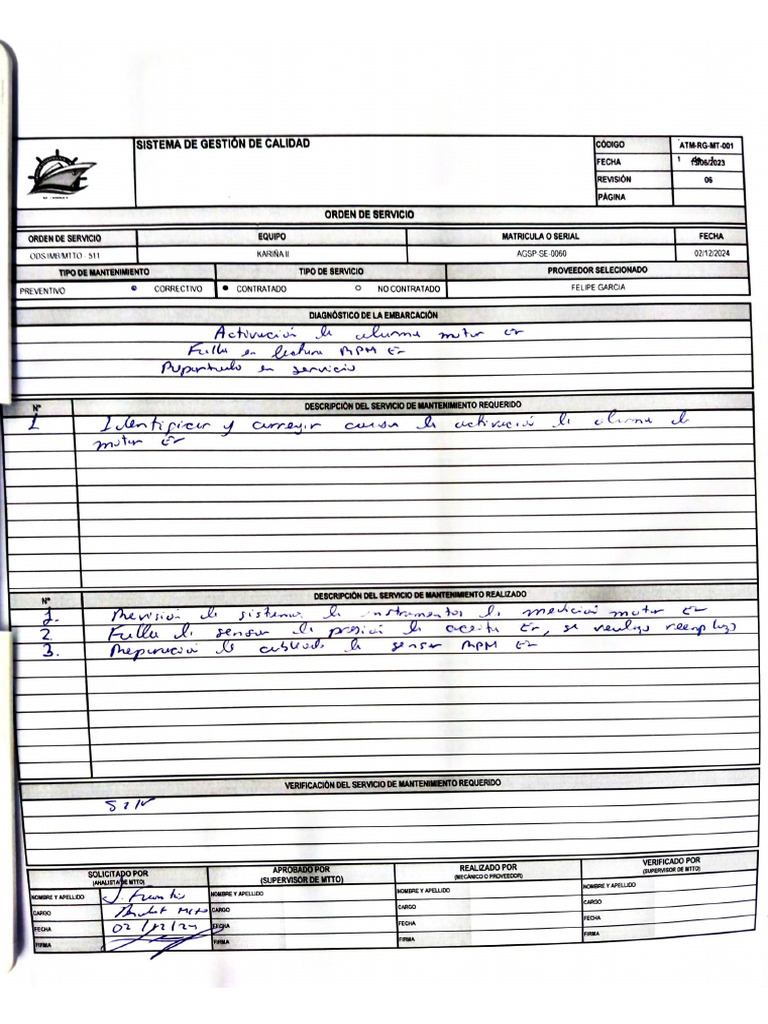 SISTEMA DE GESTIÓN DE CALIDAD
CÓDIGO ATM-RG-MT-001
FECHA 15/06/2023
REVISIÓN 06
PÁGINA
ORDEN DE SERVICIO
ORDEN DE SERVICIO EQUIPO MATRICULA O SERIAL FECHA
ODS IMB/MTTO - 511 KARIÑA II AGSP-SE-0060 02/12/2024
TIPO DE MANTENIMIENTO TIPO DE SERVICIO PROVEEDOR SELECIONADO
PREVENTIVO CORRECTIVO CONTRATADO NO CONTRATADO FELIPE GARCIA
DIAGNÓSTICO DE LA EMBARCACIÓN
Activación de alarma motor Er
Falla en lectura RPM Er
Reportado en servicio
Nº DESCRIPCIÓN DEL SERVICIO DE MANTENIMIENTO REQUERIDO
1 Identificar y corregir causa de activación de alarma de
motor Er
Nº DESCRIPCIÓN DEL SERVICIO DE MANTENIMIENTO REALIZADO
1. Revisión de sistema de instrumentos de medición motor Er
2. Falla de sensor de presión de aceite Er, se realizo reemplazo
3. Reparación de cableado de sensor RPM Er
VERIFICACIÓN DEL SERVICIO DE MANTENIMIENTO REQUERIDO
SOLICITADO POR APROBADO POR REALIZADO POR VERIFICADO POR
(ANALISTA DE MTTO) (SUPERVISOR DE MTTO) (MECÁNICO O PROVEEDOR) (SUPERVISOR DE MTTO)
NOMBRE Y APELLIDO J. NOMBRE Y APELLIDO NOMBRE Y APELLIDO NOMBRE Y APELLIDO
CARGO Mtto CARGO CARGO CARGO
FECHA 02/12/24 FECHA FECHA FECHA
FIRMA FIRMA FIRMA FIRMA